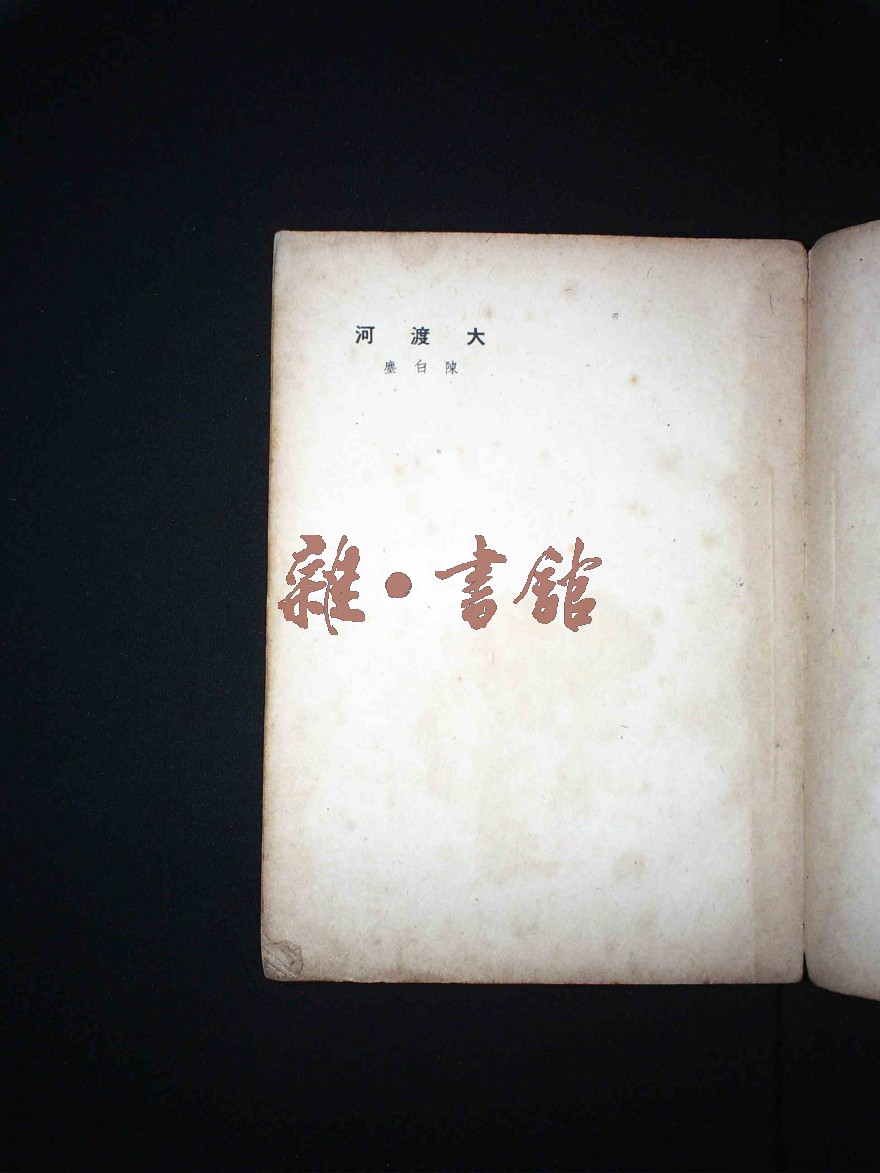 大渡河
陳白塵
雜·書館